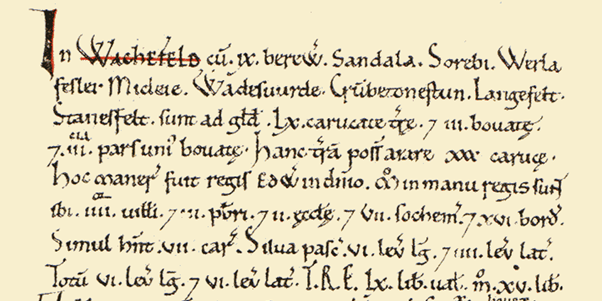 In WACHEFELD cū . ix . bereẘ . Sandala . Sorebi . Werla
fesler . Micleie . Wadesuurde . Crūbetonestun . Langefelt .
Stanesfelt . sunt ad gld̄ . Lx . carucatę tr̄ę . 7 iii . bouatę .
7 . iii . cia pars uni' bouatę . Hanc tr̄ā poss̄ arare xxx carucę .
Hoc maner̄ fuit regis EdW̄ in dn̄io . M̊ in manu regis sunt
ibi . iiii . uilli . 7 . iii . pb̄ri . 7 ii . ęcclę . 7 vii . sochem̄ . 7 xvi . bord̄ .
Simul hn̄t . vii . car̄ . Silua pasc̄ . vi . leẘ lḡ . 7 iiii . leẘ lat̄ .
Totū vi . leẘ lḡ . 7 vi . leẘ lat̄ . T . R . E . Lx . lib̄ . ual̄ . m̊ . xv . lib̄ .